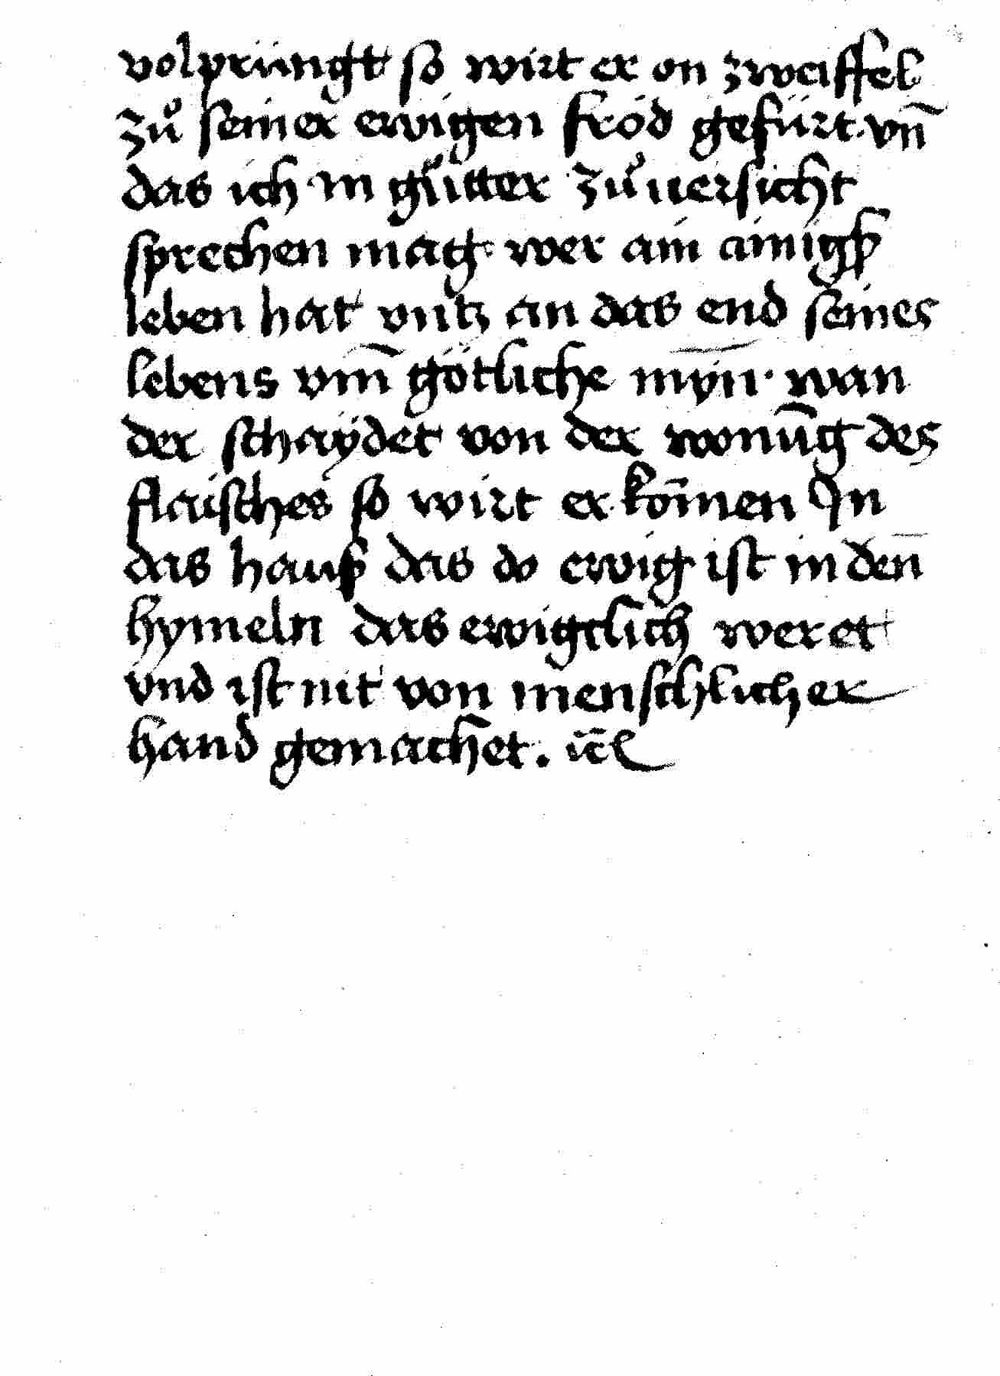 volpringt so wirt er on zweiffel
zů seiner ewigen fröd gefürt. vn̄
das ich in gůtter zůuersicht
sprechen mag. wer ain ainigß
leben hat vntz an das end seines
lebens vm̄ götliche myn̄. wan
der schaydet von der wonūg des
flaisches so wirt er kom̄en Jn
das hauß das do ewig ist in den̄
hymeln das ewigclich weret
vnd ist nit von menschlicher
hand gemachet.